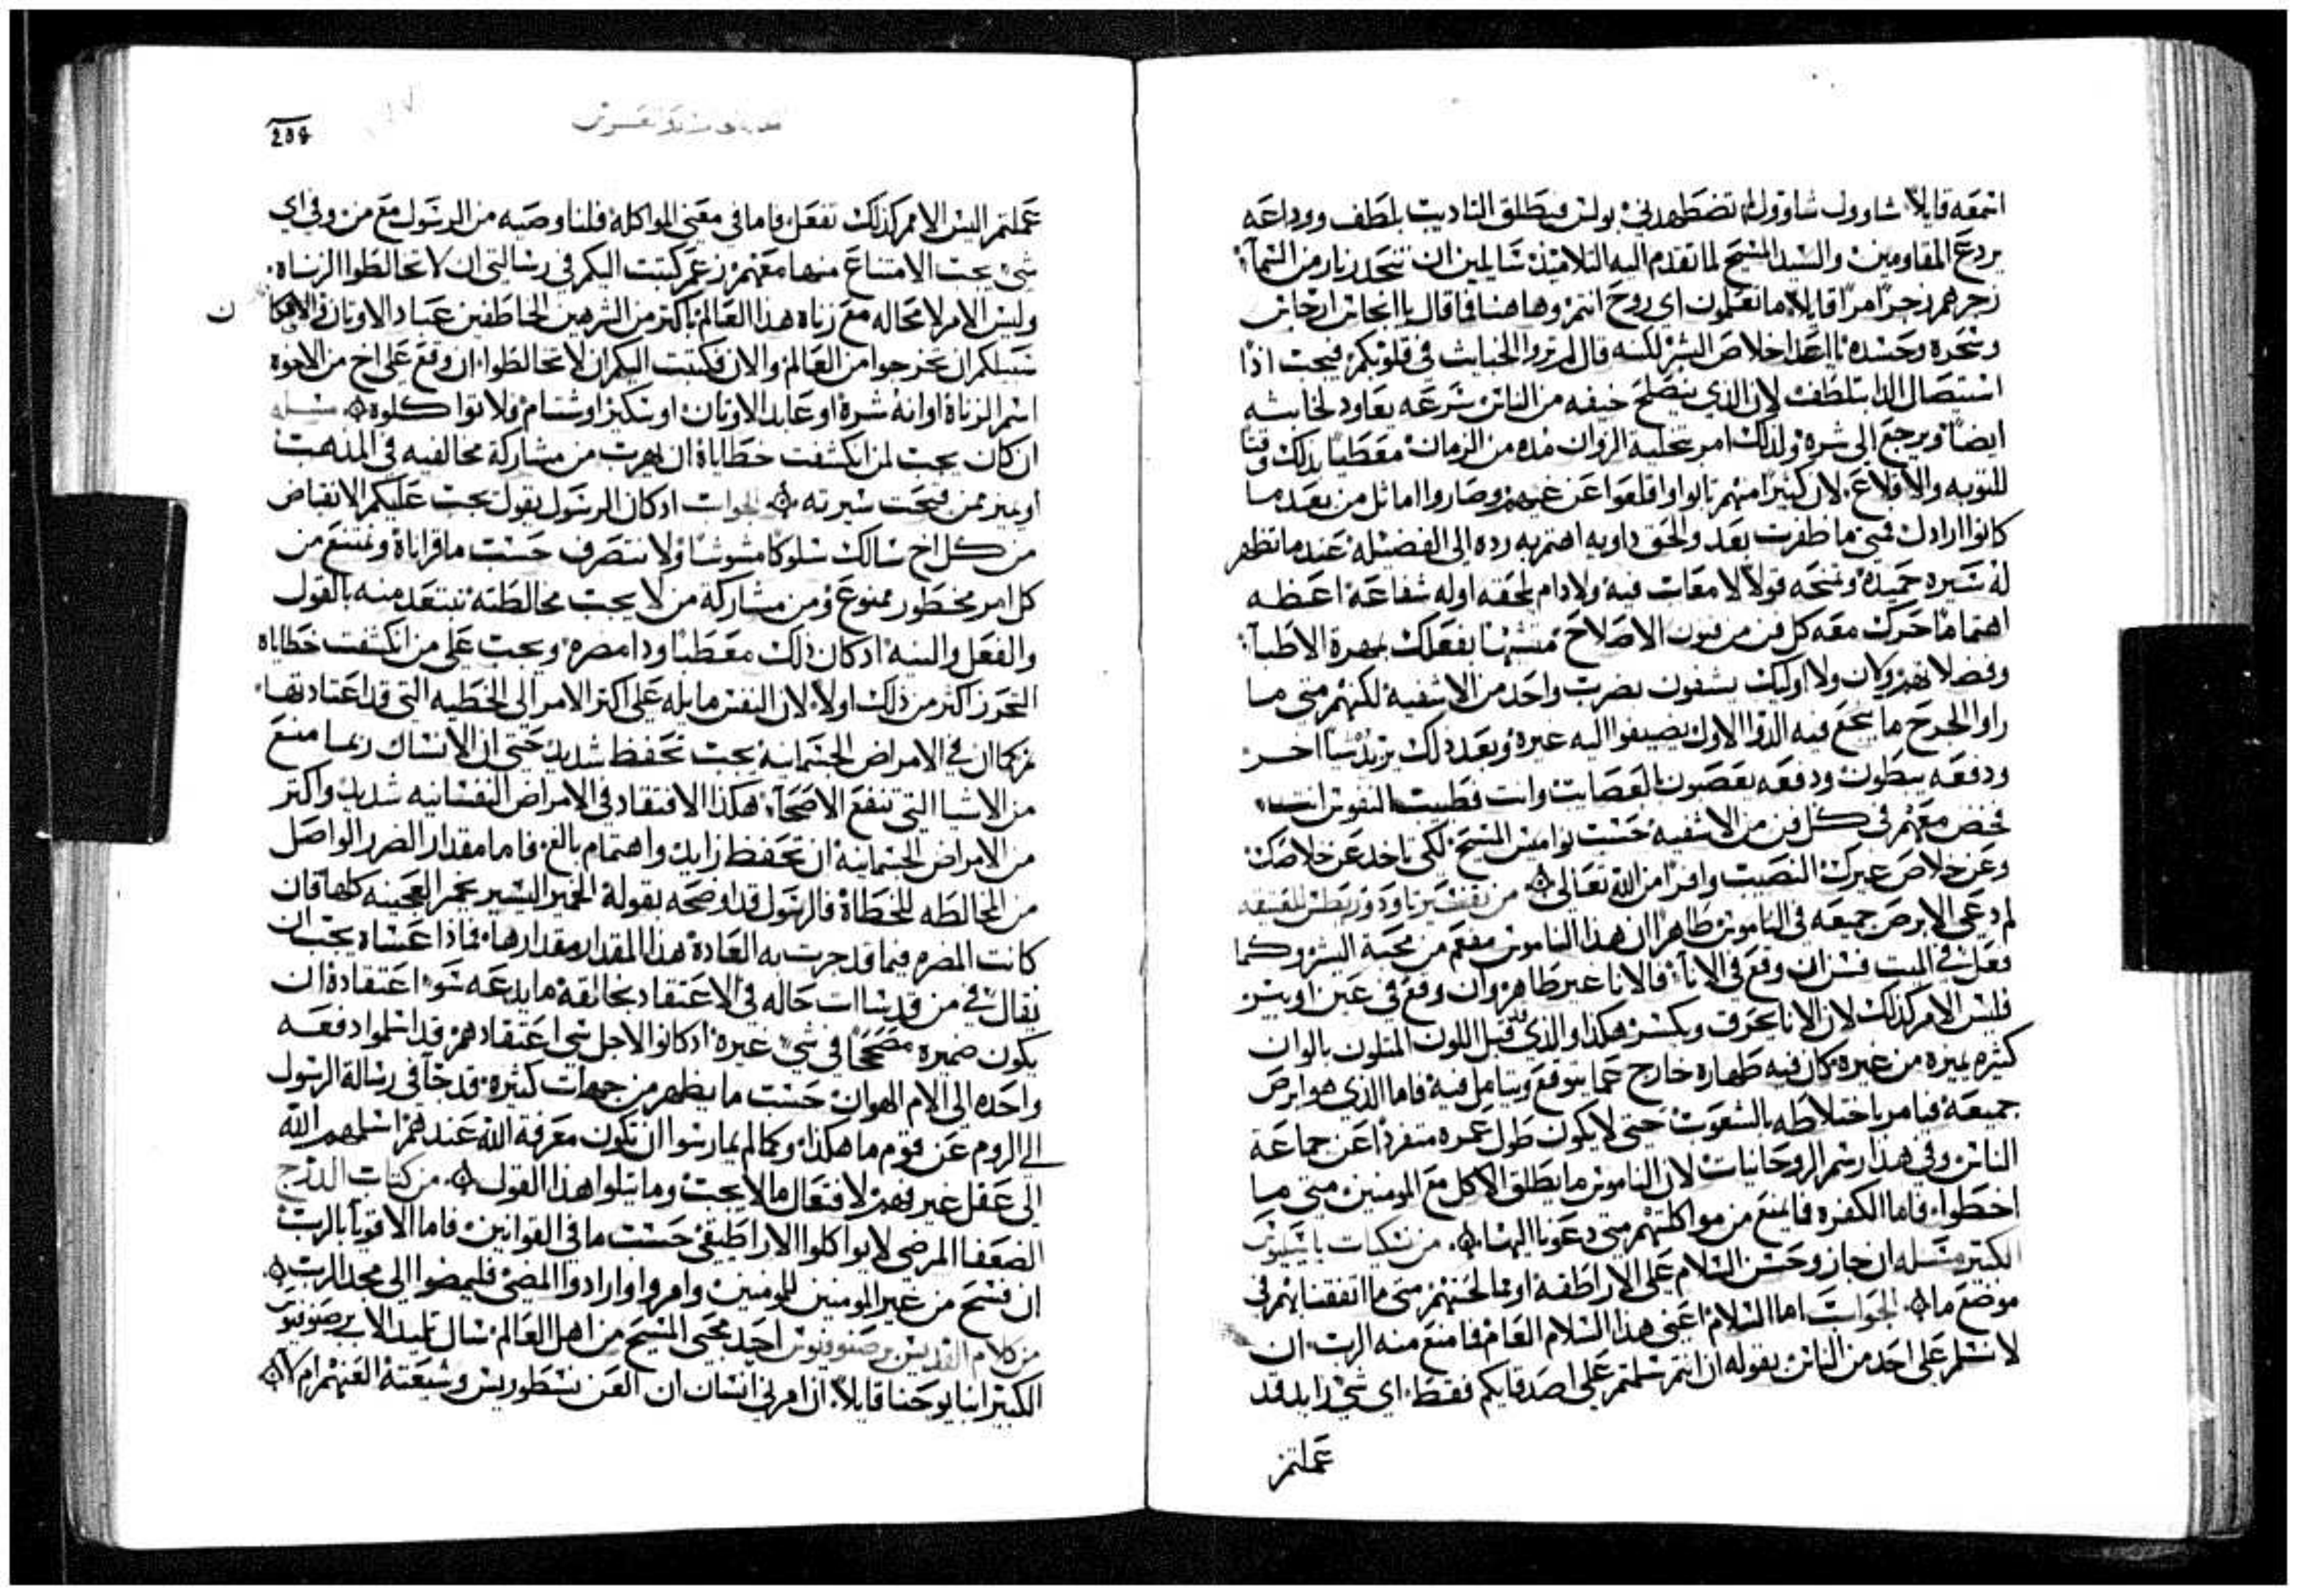 اسمعه قايلًا شاوول شاوول لم تضطهدني بولس فيطلق التاديب بلطف ووداعه
يردع المقاومين والسيد المسيح لما تقدم اليه التلاميذ سايلين ان تنحدر نار من السمآ
زجرهم زجرًا مرًا قايلًا ما تعلمون اي روح انتم وهاهنا فما قال يا انجاس ارجاس
وسحره وحسده يا اعدا خلاص البشر لكنه قال لم تروا الخباث في قلوبكم فيجب اذًا
استيصال الدا بتلطف لان الذي ينصلح خيفه من الناس سرعه يعاود لخباثته
ايضًا ويرجع الى شره ولذلك امر بتخلية الزوان مده من الزمان معطيًا بذلك وقتًا
للتوبه والاقلاع لان كثيرًا منهم تابوا واقلعوا عن غيهم وصاروا اماثل من بعد ما
كانوا ارادل فمتى ما ظفرت بعد والحق داويه اهتم به رده الى الفضيله عند ما تظهر
له سيره حميده وتمنحه قولًا لا معاب فيه ولا دام لحقه اوله شفاعه اعطه
اهتمامًا حرك معه كل فن من فنون الاصلاح متشبهًا بفعلك بمهرة الاطبآ
وفضلايهم وكان ولا اوليك يشفون بضرب واحد من الاشفيه لكنهم متى ما
راوا الجرح ما ينجع فيه الدوا الاول يضيفوا اليه غيره وبعد ذلك يزيد شيا اخر
ودفعه يبطون ودفعه يعصون بالعصايب وانت فطبيب النفوس انت
فخض معهم في كل فن من الاشفيه حسب نواميس المسيح لكي تاخد عن خلاصك
وعن خلاص غيرك النصيب وافرًا من الله تعالى من تفسير تاودوريطس للقيفه
لم دعي الابرص جميعه في الناموس طاهرًا ان هذا الناموس مفعم من محبة البشر وكما
فعل في الميت فسن ان وقع في الانآ فالانا غير طاهر وان وقع في عين او بير
فليس الامر كذلك لان الانا يحرق ويكسر هكذا والذي قد قبل اللون المتلون بالوان
كثيره يميزه من غيره كان فيه طهاره خارج عما يتوقع ويتامل فيه فاما الذي هو ابرص
جميعه فيامر باختلاطه بالشعوب حتى لا يكون طول عمره متفردًا عن جماعة
الناس وفي هذا رسم الروحانيات لان الناموس ما يطلق الاكل مع المومنين متى ما
اخطوا فاما الكفره فما يمنع من مواكلتهم متى دعونا اليها من نسكيات باسيليوس
الكبير مسله ان جاز وحسن السلام على الاراطقه اومالحسهم متى ما اتفقنا بهم في
موضع ما الجواب اما السلام اعني هذا السلام العام فما منع منه الرب ان
لا نسلم على احد من الناس بقوله ان انتم سلمتم على اصدقايكم فقط اي شي زايد قد
عملتم
209
عملتم اليس الامر كذلك تفعل فاما في معنى المواكله فلنا وصيه من الرسول مع من وفي اي
شي يجب الامتناع منها معهم زعم كتبت اليكم في رسالتي ان لا تخالطوا الزناه
وليس الامر لا محاله مع زناه هذا العالم باكتر من الشرهين الخاطفين عباد الاوتان والافكا
ن
سبيلكم ان تخرجوا من العالم والان فكتبت اليكم ان لا تخالطوا ان وقع على اخ من الاخوه
اسم الزناة او انه شره او عابد الاوتان او سكير او شتام ولا تواكلوه مسله
ان كان يجب لمن انكشفت خطاياه ان يهرب من مشاركة مخالفيه في المذهب
او يميز ممن قبحت سيرته الجواب اد كان الرسول يقول يجب عليكم الانقباض
من كل اخ سالك سلوكًا مشوشًا ولا نتصرف حسب ما قراناه ونمتنع من
كل امر محظور ممنوع ومن مشاركة من لا يجب مخالطته نبتعد منه بالقول
والفعل والنيه اد كان ذلك معطبًا ودا مضره ويجب على من انكشفت خطاياه
التحرز اكثر من ذلك اولًا لان النفس مايله على اكثر الامر الى الخطيه التي قد اعتادتها
ثم كما ان في الامراض الجسمانيه يجب تحفظ شديد حتى ان الانسان ربما منع
من الاشيا التي تنفع الاصحآ هكذا الافتقاد في الامراض النفسانيه شديد واكتر
من الامراض الجسمانيه ان تحفظ زايد واهتمام بالغ فاما مقدار الضرر الواصل
من المخالطه للخطاة فالرسول قد اوضحه بقوله الخمير اليسير يخمر العجينه كلها فان
كانت المضره فيما قد جرت به العاده هذا المقدار مقدارها فماذا عساه يجب ان
يقال في من قد سات حاله في الاعتقاد بخالقه ما يدعه سو اعتقاده ان
يكون ضميره مصححًا في شي غيره اد كانوا لاجل شي اعتقادهم قد اسلموا دفعه
واحده الى الام الهوان حسب ما يظهر من جهات كثيره قد جآ في رسالة الرسول
الى الروم عن قوم ما هكذا وكما لم يمارسوا ان تكون معرفة الله عندهم اسلمهم الله
الى عقل غير فهم لافتعال ما لا يجب وما يتلوا هذا القول من كتاب الدرج
الضعفا المرضى لا يواكلوا الاراطيقي حسب ما في القوانين فاما الاقويآ بالرب
ان فسح من غير المومنين للمومنين وامروا وارادوا المضي فليمضوا الى مجد الرب
من كلام القديس برصنوفيوس احد محبي المسيح من اهل العالم سال تلميد الاب برصنوفيوس
الكبير انبا يوحنا قايلًا ان امرني انسان ان العن نسطوريس وشيعته العنهم ام لا